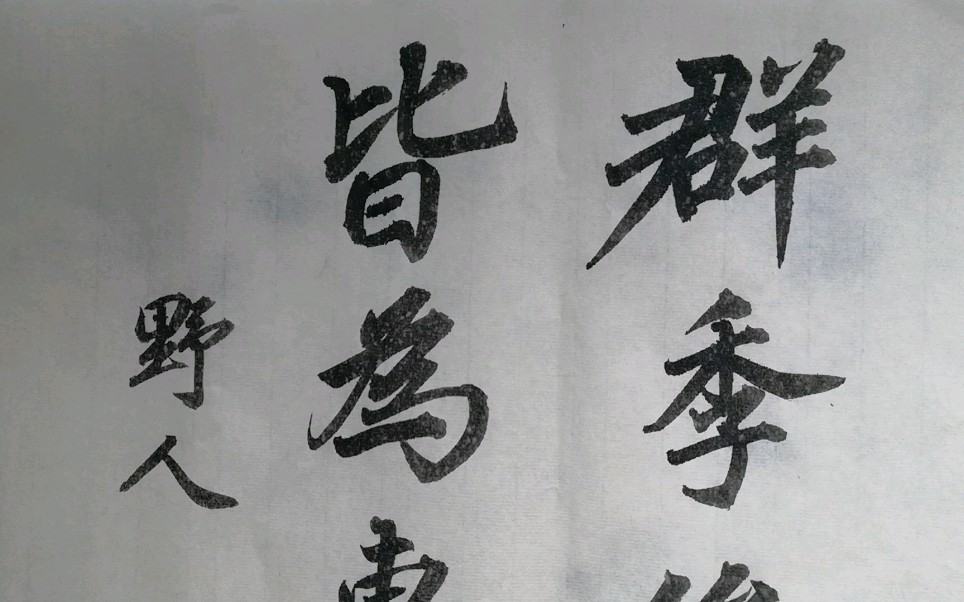 群季
皆為
野人